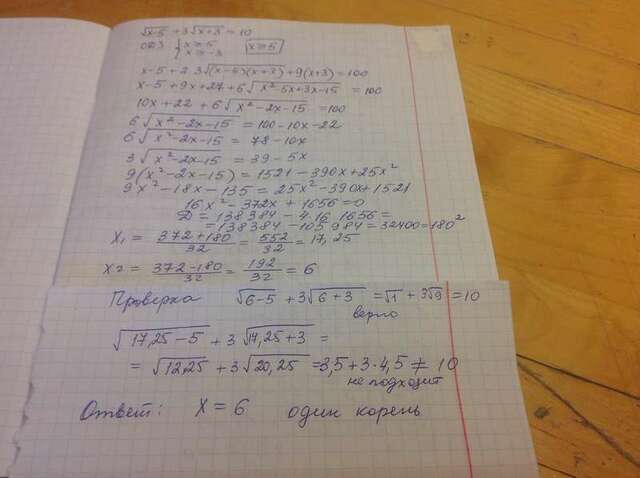 √x-5 + 3√x+3 = 10
ОДЗ { x ≥ 5 x ≥ -3 x ≥ 5
x-5+2·3√(x-5)(x+3) + 9(x+3) = 100
x-5+9x+27+6√x²-5x+3x-15 = 100
10x+22+6√x²-2x-15 = 100
6√x²-2x-15 = 100-10x-22
6√x²-2x-15 = 78-10x
3√x²-2x-15 = 39-5x
9(x²-2x-15) = 1521-390x+25x²
9x²-18x-135 = 25x²-390x+1521
16x²-372x+1656=0
Д = 138384-4·16·1656=
=138384-105984=32400=180²
X₁ = 372+180/32 = 552/32 = 17,25
X2 = 372-180/32 = 192/32 = 6
Проверка √6-5 + 3√6+3 = √1 + 3√9 = 10
верно
√17,25-5 + 3√17,25+3 =
= √12,25 + 3√20,25 = 3,5+3·4,5 ≠ 10
не подходит
Ответ: X = 6 один корень